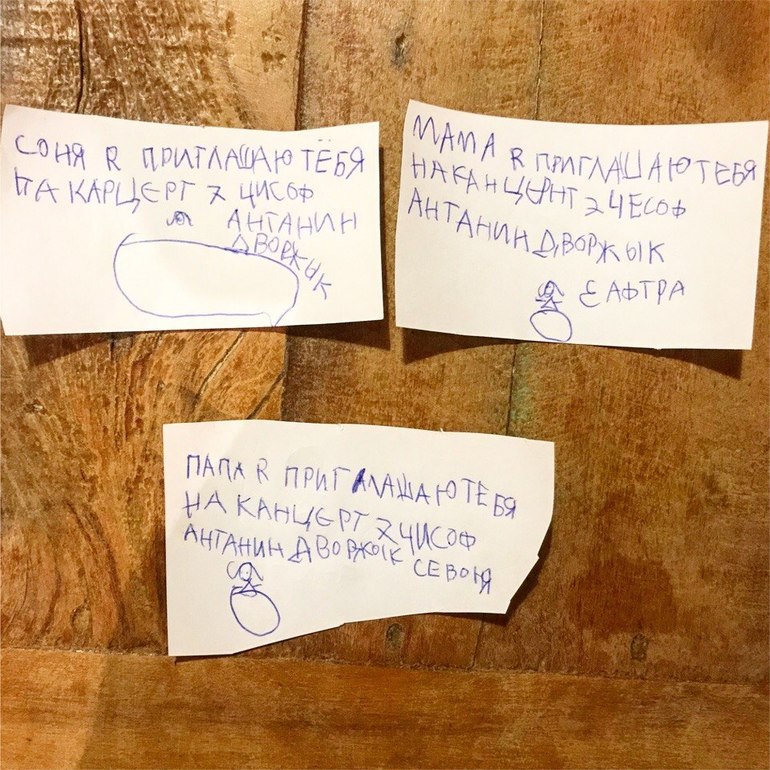 СОНЯ R ПРИГЛАШАЮ ТЁБЯ
НА КАРЦЕРТ 7 ЧИСОФ
АНТАНИН
ДВОРЖЫК
МАМА R ПРИГЛАШАЮ ТЕБЯ
НА КАНЦЕРНТ 7 ЧЕСОФ
АНТАНИН ДВОРЖЫК
ЕАФТРА
ПАПА R ПРИГАЛАШАЮ ТЕБЯ
НА КАНЦЕРТ 7 ЧИСОФ
АНТАНИН ДВОРЖЫК СЕВОНЯ